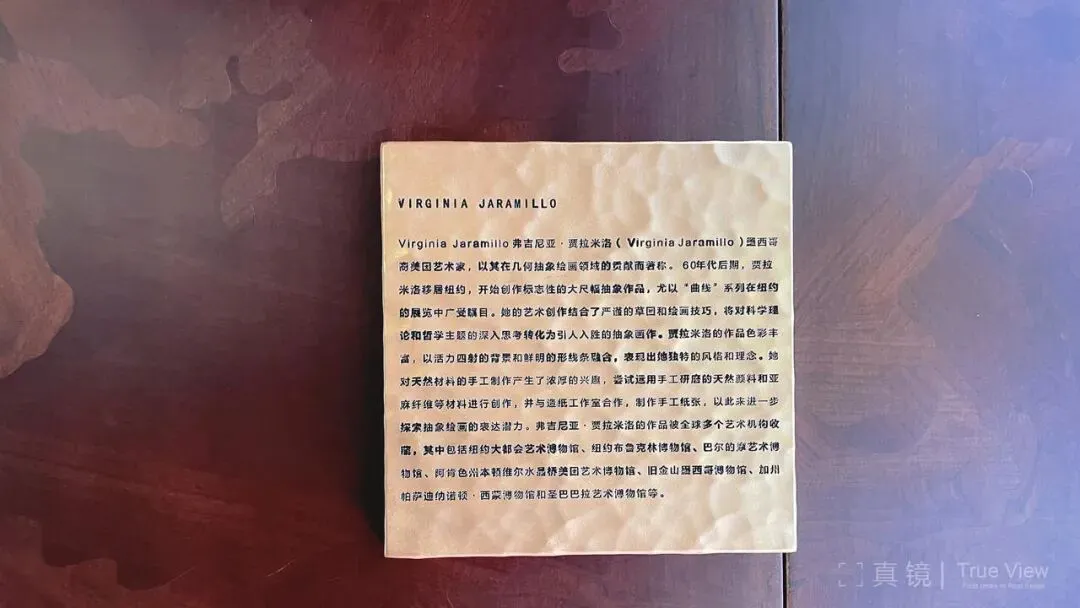 VIRGINIA JARAMILLO
Virginia Jaramillo 弗吉尼亚·贾拉米洛( Virginia Jaramillo )墨西哥
裔美国艺术家，以其在几何抽象绘画领域的贡献而著称。 60年代后期，贾拉
米洛移居纽约，开始创作标志性的大尺幅抽象作品，尤以“曲线”系列在纽约
的展览中广受瞩目。她的艺术创作结合了严谨的草图和绘画技巧，将对科学理
论和哲学主题的深入思考转化为引人入胜的抽象画作。贾拉米洛的作品色彩丰
富，以活力四射的背景和鲜明的形线条融合，表现出她独特的风格和理念。她
对天然材料的手工制作产生了浓厚的兴趣，尝试运用手工研磨的天然颜料和亚
麻纤维等材料进行创作，并与造纸工作室合作，制作手工纸张，以此来进一步
探索抽象绘画的表达潜力。弗吉尼亚·贾拉米洛的作品被全球多个艺术机构收
藏，其中包括纽约大都会艺术博物馆、纽约布鲁克林博物馆、巴尔的摩艺术博
物馆、阿肯色州本顿维尔水晶桥美国艺术博物馆、旧金山墨西哥博物馆、加州
帕萨迪纳诺顿·西蒙博物馆和圣巴巴拉艺术博物馆等。
真镜 True View